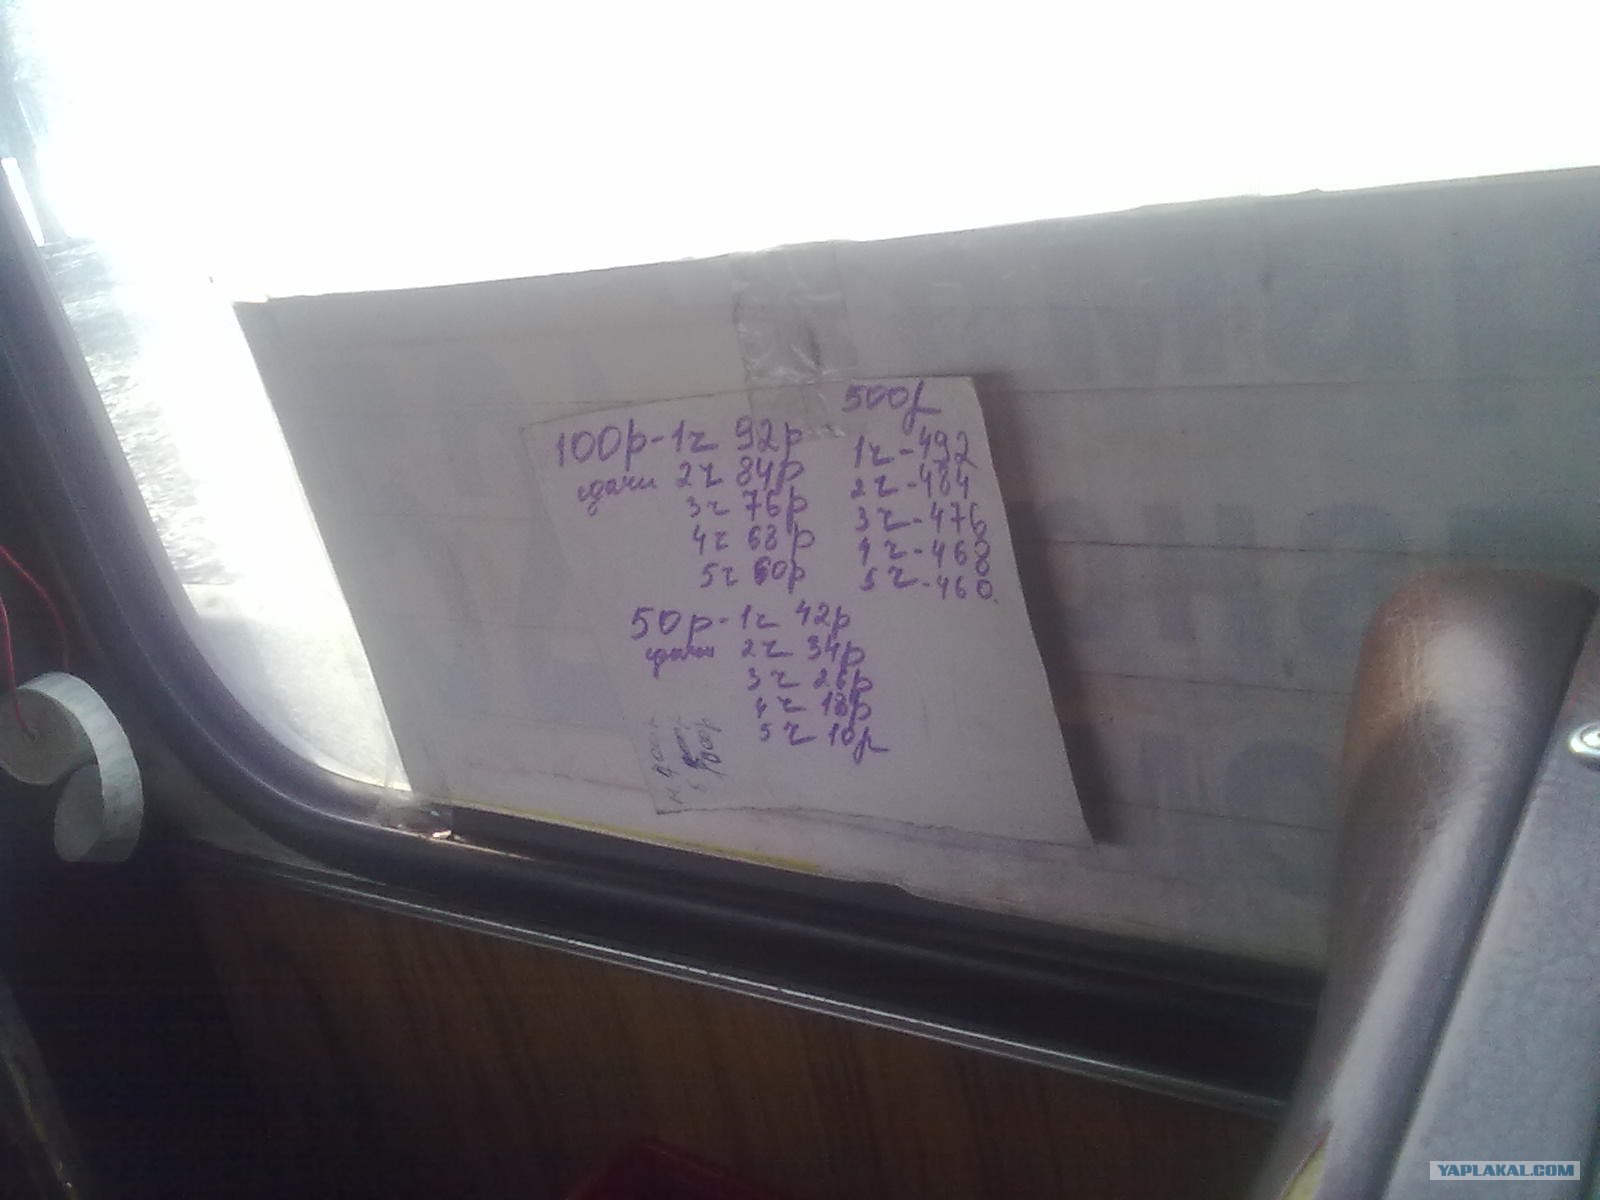 100р-1ч 92р
сдачи 2ч 84р
3ч 76р
4ч 68р
5ч 60р
500р
1ч-492
2ч-484
3ч-476
4ч-468
5ч-460
50р-1ч 42р
сдачи 2ч 34р
3ч 26р
4ч 18р
5ч 10р
YAPLAKAL.COM